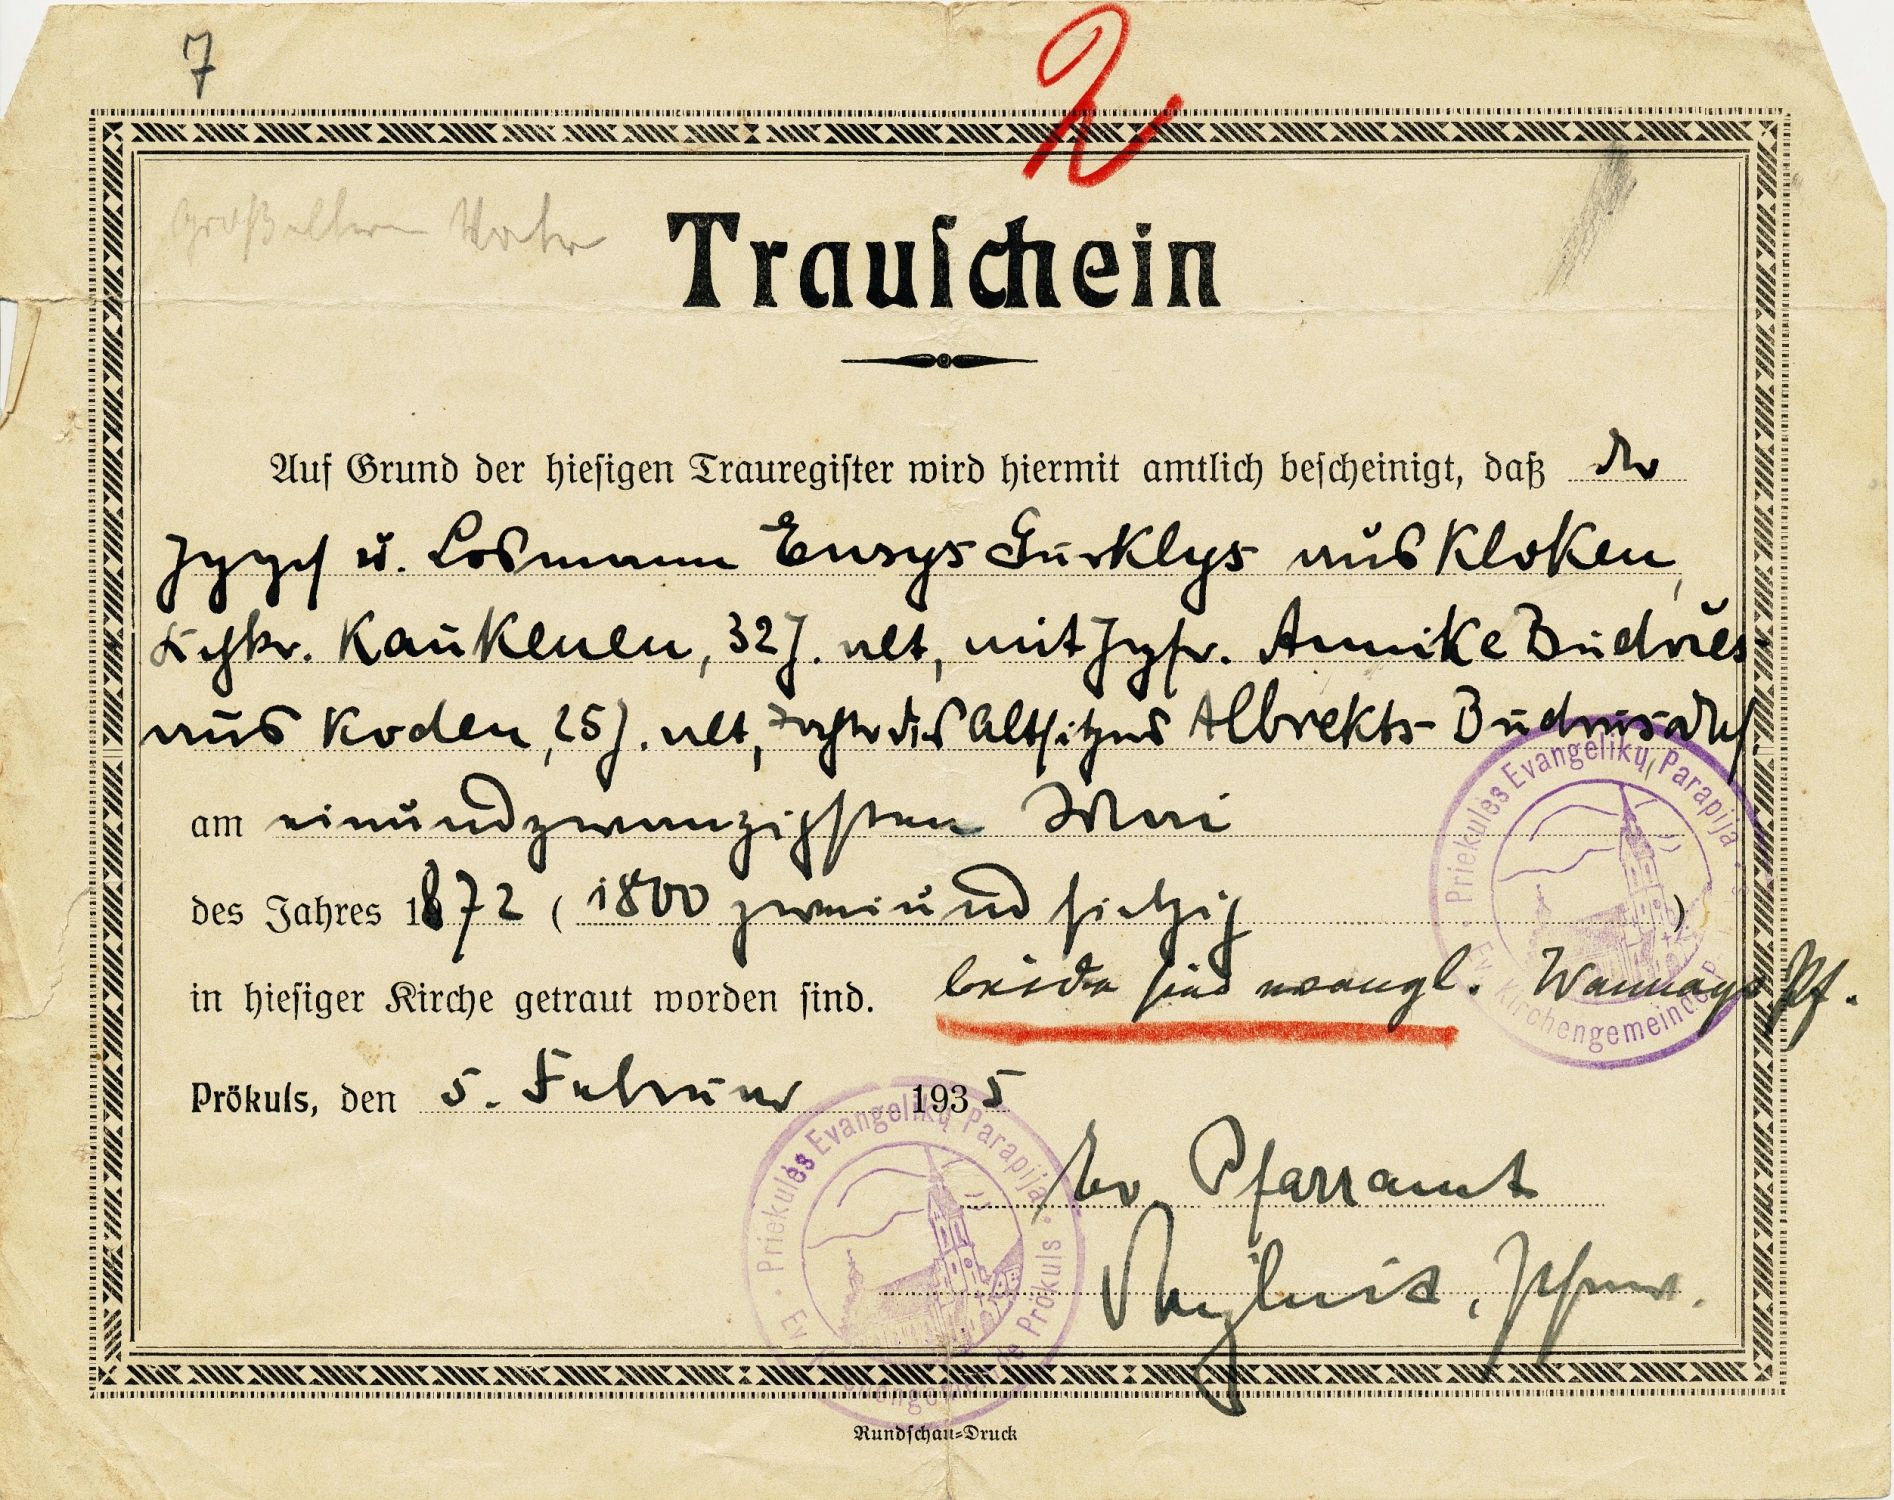 7
2
Großeltern Vater
Trauschein
Auf Grund der hiesigen Trauregister wird hiermit amtlich bescheinigt, daß der
Jggs. u. Losmann Ensys Gurklys aus Kloken,
Kchsp. Kaukenen, 32 J. alt, mit Jgfr. Annike Budrus
aus Koden, 25 J. alt, Tochter des Altsitzers Albrekts Budrus
am einundzwanzigsten Mai
des Jahres 1872 ( 1800 zweiundsiebzig )
in hiesiger Kirche getraut worden sind. beide sind evangl. Pf.
Prökuls, den 5. Februar 1935
Ev. Pfarramt
Pfarrer.
Priekulės Evangelikų Parapija
Ev. Kirchengemeinde
Priekulės Evangelikų Parapija
Ev. Kirchengemeinde Prökuls
Rundschau-Druck